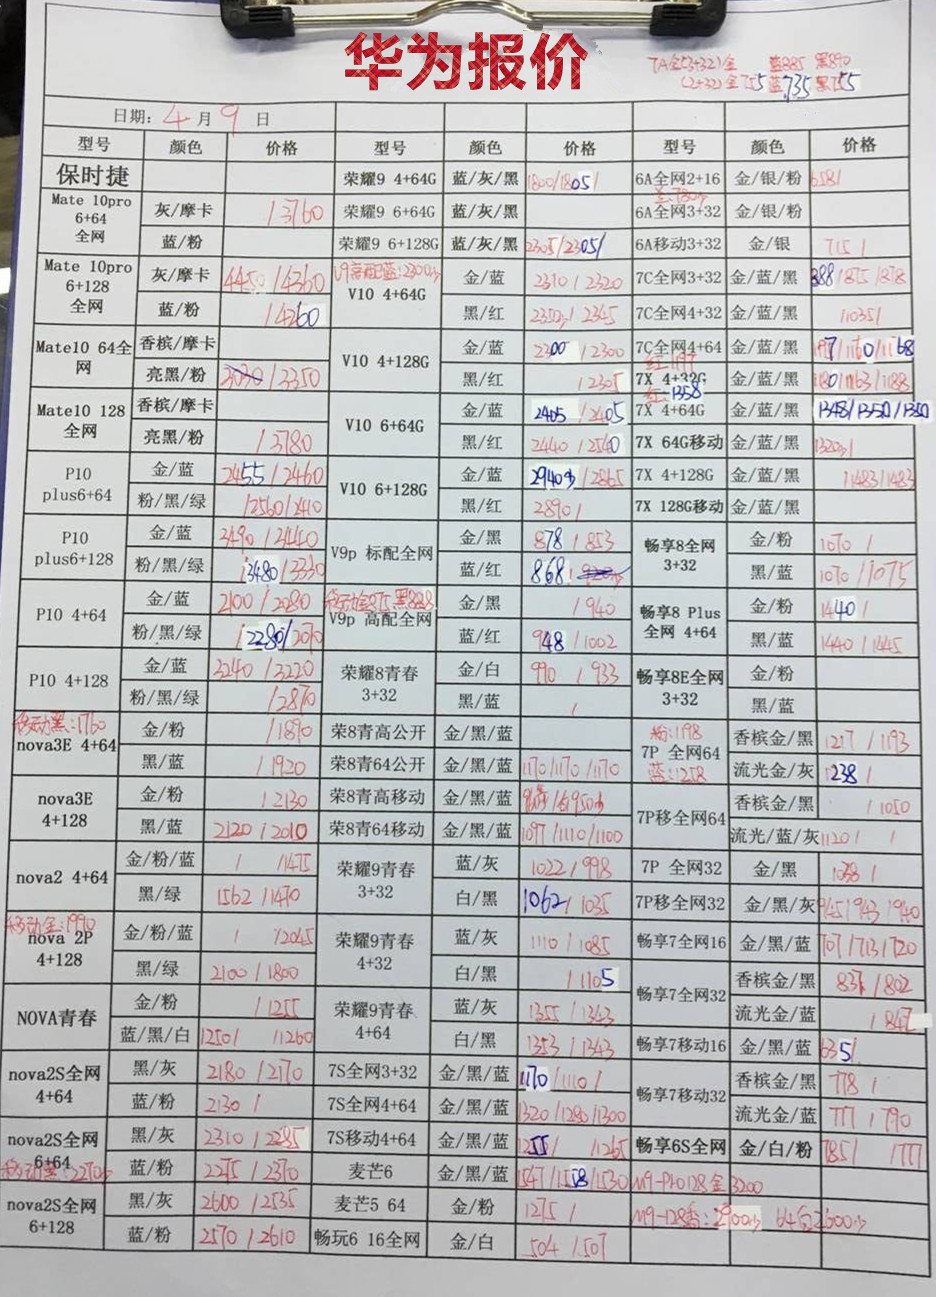 华为报价
7A全(3+32)金 蓝885 黑890
(2+32)金755 蓝735 黑755
日期: 4 月 9 日
型号 颜色 价格 型号 颜色 价格 型号 颜色 价格
保时捷 荣耀9 4+64G 蓝/灰/黑 1800/1805/ 6A全网2+16 金/银/粉 658/
Mate 10pro 6+64 全网 灰/摩卡 /3760 荣耀9 6+64G 蓝/灰/黑 6A全网3+32 金/银/粉
蓝/粉 荣耀9 6+128G 蓝/灰/黑 2305/2305/ 6A移动3+32 金/银 715/
Mate 10pro 6+128 全网 灰/摩卡 4450/4360 V10 4+64G 金/蓝 2310/2320 7C全网3+32 金/蓝/黑 888/875/878
蓝/粉 /4260 黑/红 /2345 7C全网4+32 金/蓝/黑 /1035/
Mate10 64全网 香槟/摩卡 V10 4+128G 金/蓝 2300/2300 7C全网4+64 金/蓝/黑 /1160/1168
亮黑/粉 /3350 黑/红 /2305 红:1197 7X 4+32G 金/蓝/黑 1180/1163/1188
Mate10 128全网 香槟/摩卡 V10 6+64G 金/蓝 2405/2405 红:1358 7X 4+64G 金/蓝/黑 1348/1350/1350
亮黑/粉 /3780 黑/红 2440/2540 7X 64G移动 金/蓝/黑
P10 plus6+64 金/蓝 2455/2460 V10 6+128G 金/蓝 /2865 7X 4+128G 金/蓝/黑 /1483/1483
粉/黑/绿 /2560/2410 黑/红 2890/ 7X 128G移动 金/蓝/黑
P10 plus6+128 金/蓝 3490/3440 V9p 标配全网 金/黑 878/853 畅享8全网 3+32 金/粉 1070/
粉/黑/绿 /3480/3330 蓝/红 868/ 黑/蓝 1070/1075
P10 4+64 金/蓝 2100/2080 移动金875 黑888 V9p 高配全网 金/黑 /940 畅享8 Plus 全网 4+64 金/粉 1440/
粉/黑/绿 /2280/2070 蓝/红 948/1002 黑/蓝 1440/1445
P10 4+128 金/蓝 3240/3220 荣耀8青春 3+32 金/白 990/933 畅享8E全网 3+32 金/粉
粉/黑/绿 /2870 黑/蓝 / 黑/蓝
移动黑:1760 nova3E 4+64 金/粉 /1890 荣8青高公开 金/黑/蓝 粉:1198 7P 全网64 蓝:1258 香槟金/黑 1217/1193
黑/蓝 /1920 荣8青64公开 金/黑/蓝 1170/1170/1170 流光金/灰 1238/
nova3E 4+128 金/粉 /2130 荣8青高移动 金/黑/蓝 7P移全网64 香槟金/黑 /1050
黑/蓝 2120/2010 荣8青64移动 金/黑/蓝 1097/1110/1100 流光/蓝/灰 1120/ /
nova2 4+64 金/粉/蓝 / /1475 荣耀9青春 3+32 蓝/灰 1022/998 7P 全网32 金/黑 1038/
黑/绿 1562/1470 白/黑 1062/1035 7P移全网32 金/黑/灰 945/943/940
移动金:1990 nova 2P 4+128 金/粉/蓝 / /2045 荣耀9青春 4+32 蓝/灰 1110/1085 畅享7全网16 金/黑/蓝 707/713/720
黑/绿 2100/1800 白/黑 /1105 畅享7全网32 香槟金/黑 837/802
NOVA青春 金/粉 /1255 荣耀9青春 4+64 蓝/灰 1355/1343 流光金/蓝 /847
蓝/黑/白 1250/ /1260 白/黑 1353/1343 畅享7移动16 金/黑/蓝 635/
nova2S全网 4+64 黑/灰 2180/2170 7S全网3+32 金/黑/蓝 1170/1110/ 畅享7移动32 香槟金/黑 778/
蓝/粉 2130/ 7S全网4+64 金/黑/蓝 1320/1280/1300 流光金/蓝 777/790
nova2S全网 6+64 黑/灰 2310/2285 7S移动4+64 金/黑/蓝 1255/ /1265 畅享6S全网 金/白/粉 785/ /777
蓝/粉 2275/2370 麦芒6 金/黑/蓝 1547/1558/1530 M9-Pro128金3200
nova2S全网 6+128 黑/灰 2600/2535 麦芒5 64 金/粉 1275/ M9-128香:2900 64白2600
蓝/粉 2570/2610 畅玩6 16全网 金/白 504/507